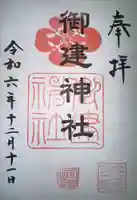 奉拝
御建神社
令和六年十二月十一日